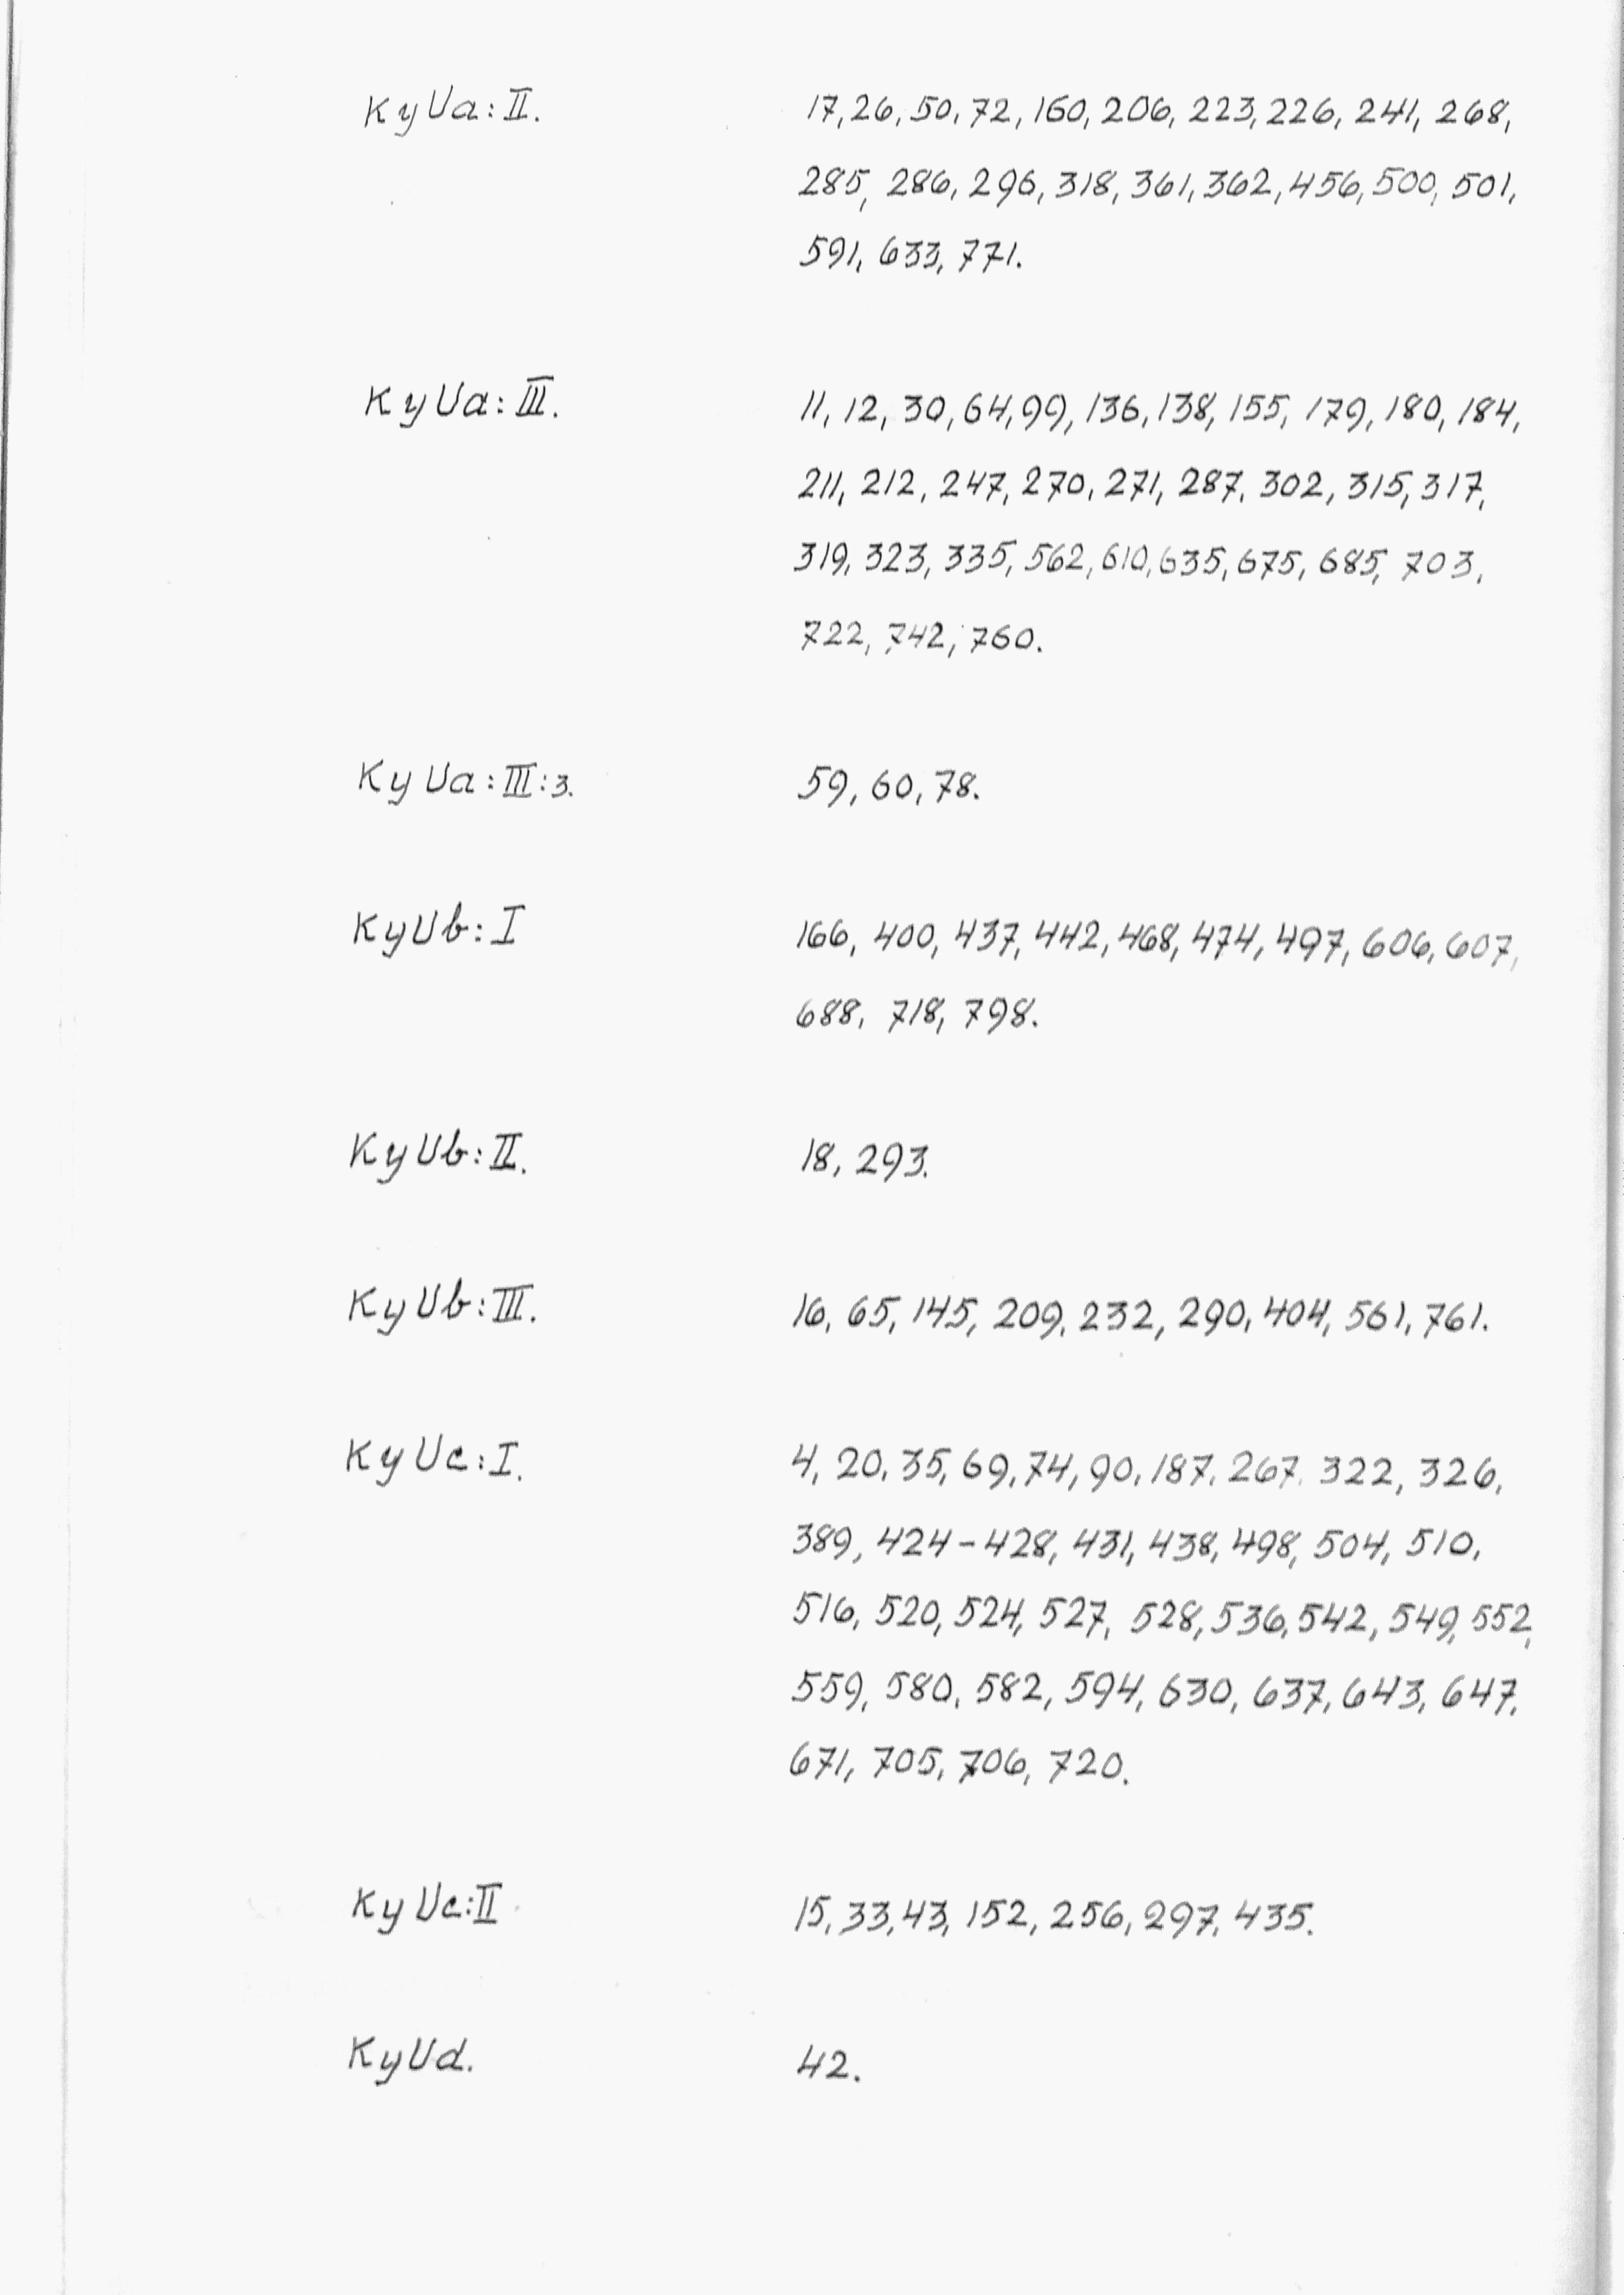 KyUa:II. 17, 26, 50, 72, 160, 206, 223, 226, 241, 268,
285, 286, 296, 318, 361, 362, 456, 500, 501,
591, 633, 771.
KyUa:III. 11, 12, 30, 64, 99, 136, 138, 155, 179, 180, 184,
211, 212, 247, 270, 271, 287, 302, 315, 317,
319, 323, 335, 562, 610, 635, 675, 685, 703,
722, 742, 760.
KyUa:III:3. 59, 60, 78.
KyUb:I 166, 400, 437, 442, 468, 474, 497, 606, 607,
688, 718, 798.
KyUb:II. 18, 293.
KyUb:III. 16, 65, 145, 209, 232, 290, 404, 561, 761.
KyUc:I. 4, 20, 35, 69, 74, 90, 187, 267, 322, 326,
389, 424-428, 431, 438, 498, 504, 510,
516, 520, 524, 527, 528, 536, 542, 549, 552,
559, 580, 582, 594, 630, 637, 643, 647,
671, 705, 706, 720.
KyUc:II. 15, 33, 43, 152, 256, 297, 435.
KyUd. 42.